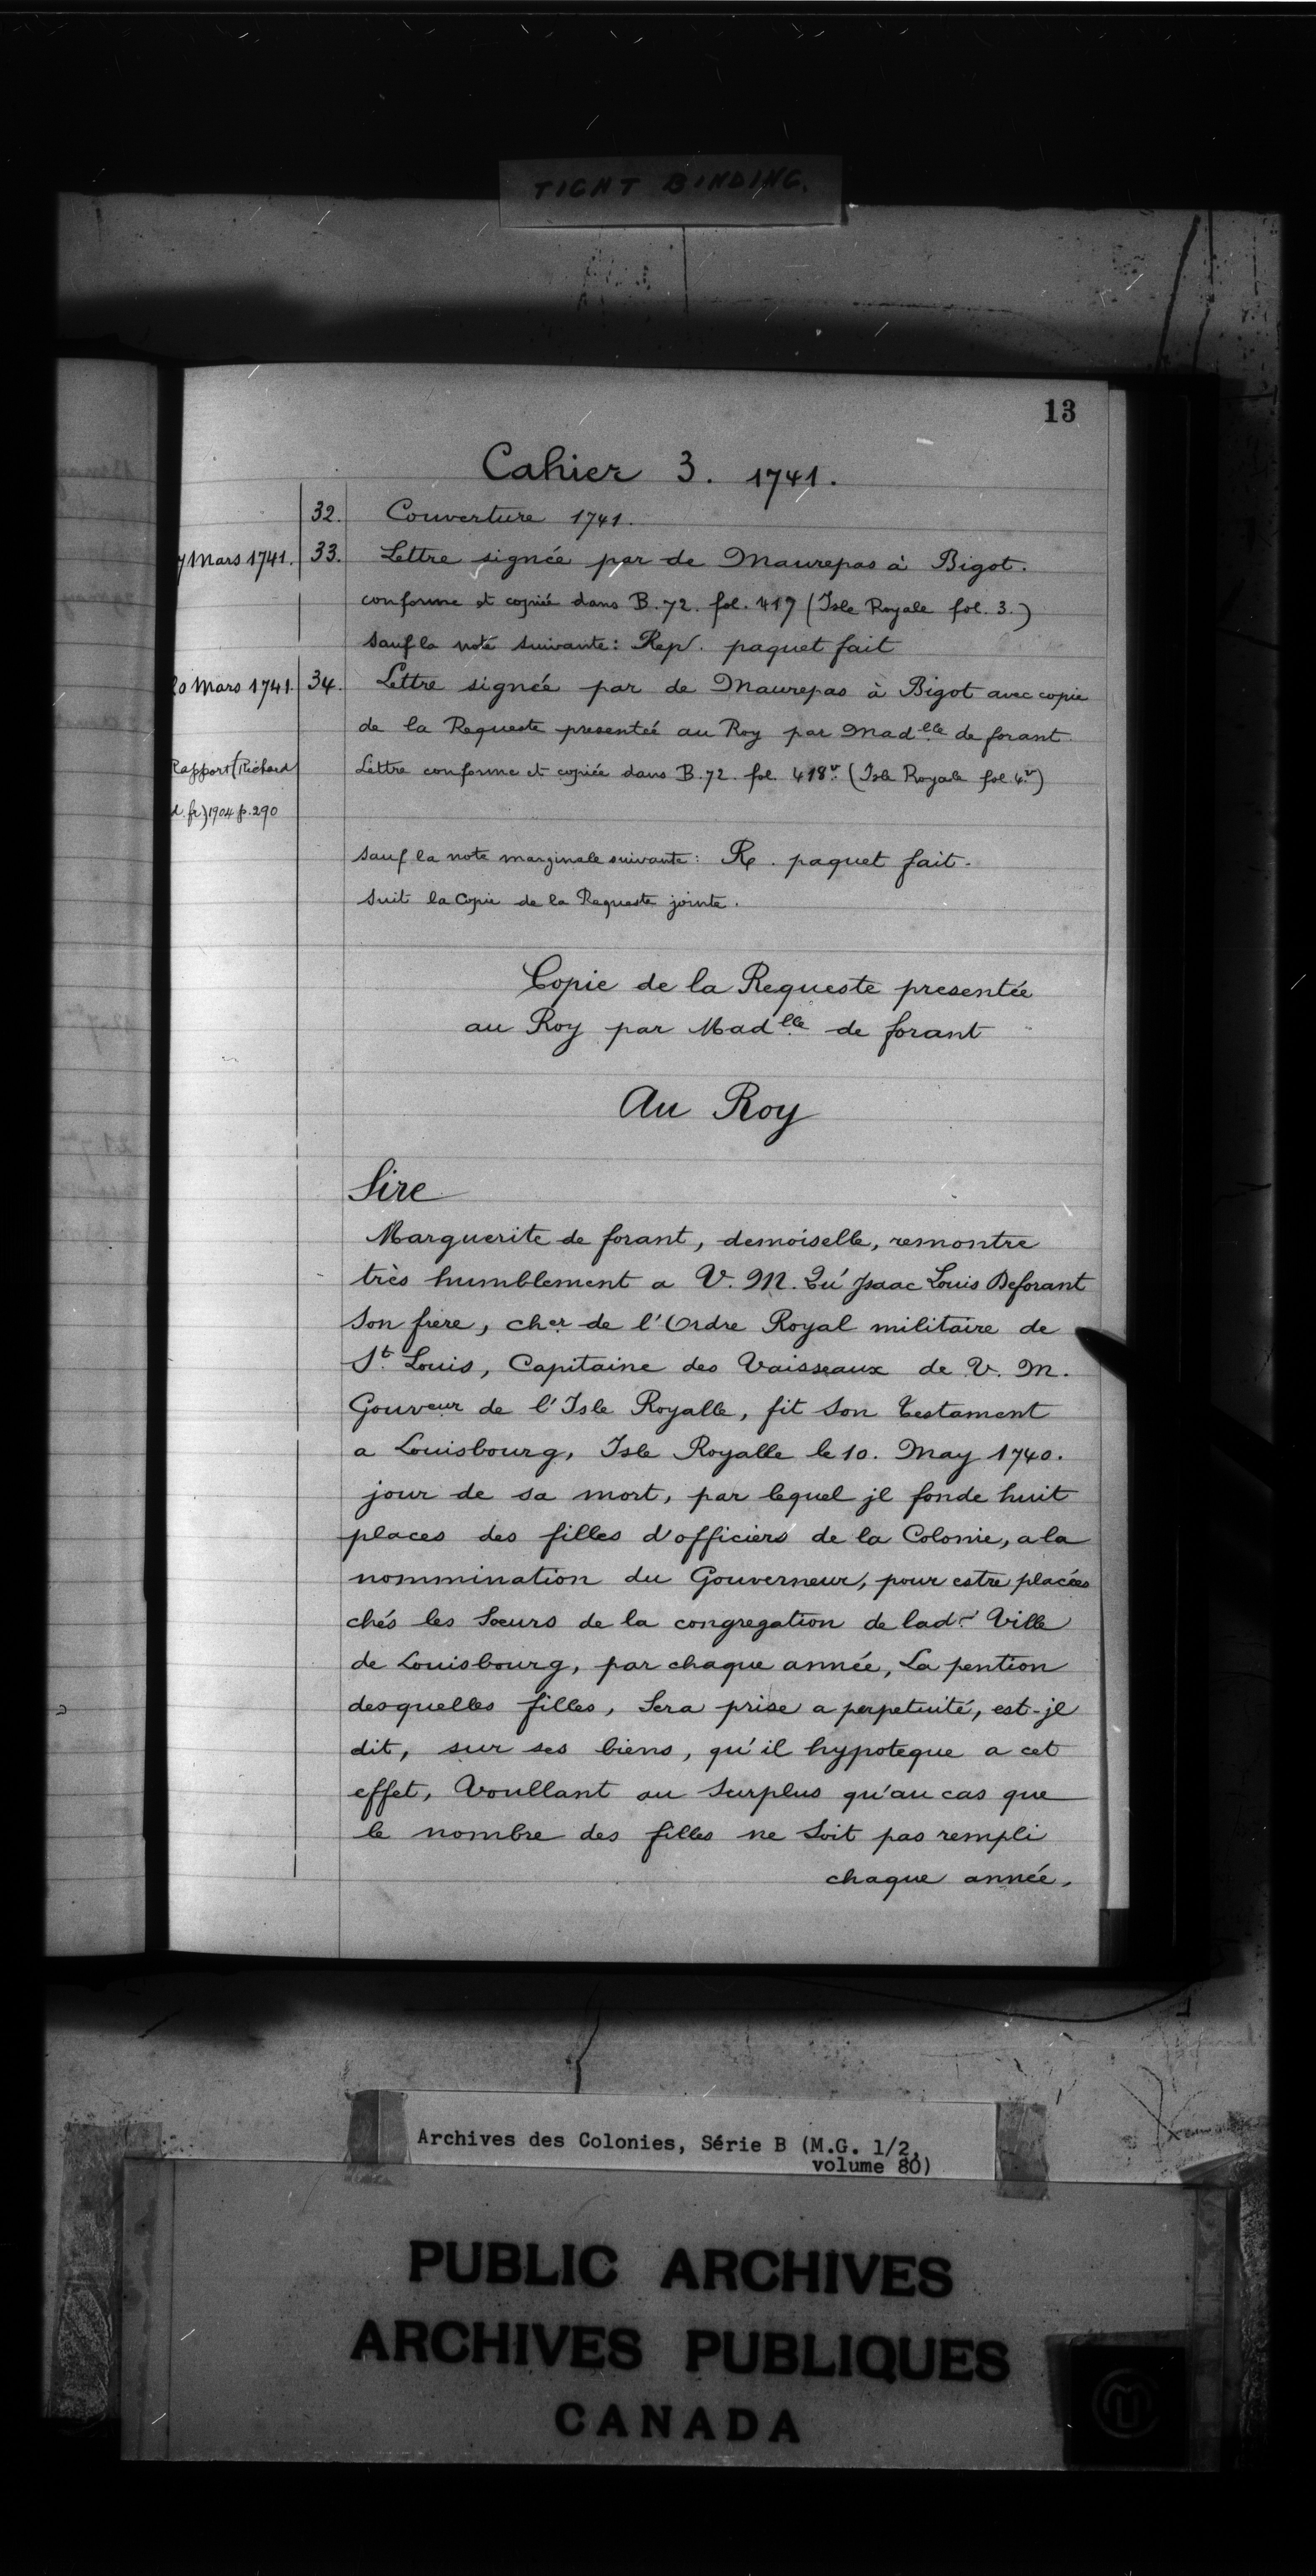 TIGHT BINDING.
13
Cahier 3. 1741.
32. Couverture 1741.
7 Mars 1741. 33. Lettre signée par de Maurepas à Bigot.
conforme et copiée dans B. 72. fol. 417 (Isle Royale fol. 3.)
sauf la note suivante: Rep. paquet fait
20 Mars 1741. 34. Lettre signée par de Maurepas à Bigot avec copie
de la Requeste presentée au Roy par Mad.lle de forant.
Rapport (Richard Lettre conforme et copiée dans B. 72. fol. 418v. (Isle Royale fol. 4.v)
d. fr.) 1904 p. 290
sauf la note marginale suivante: R. paquet fait.
suit la Copie de la Requeste jointe.
Copie de la Requeste presentée
au Roy par Mad.lle de forant
Au Roy
Sire
Marguerite de forant, demoiselle, remontre
très humblement a V. M. Qu'Jsaac Louis Deforant
son frere, cher de l'Ordre Royal militaire de
St. Louis, Capitaine des Vaisseaux de V. M.
Gouveur de l'Isle Royalle, fit son testament
a Louisbourg, Isle Royalle le 10. May 1740.
jour de sa mort, par lequel jl fonde huit
places des filles d'officiers de la Colonie, a la
nommination du Gouverneur, pour estre placées
chés les Soeurs de la congregation de lad.e Ville
de Louisbourg, par chaque année, La pention
desquelles filles, sera prise a perpetuité, est-jl
dit, sur ses biens, qu'il hypoteque a cet
effet, Voullant au surplus qu'au cas que
le nombre des filles ne soit pas rempli
chaque année,
Archives des Colonies, Série B (M.G. 1/2,
volume 80)
PUBLIC ARCHIVES
ARCHIVES PUBLIQUES
CANADA